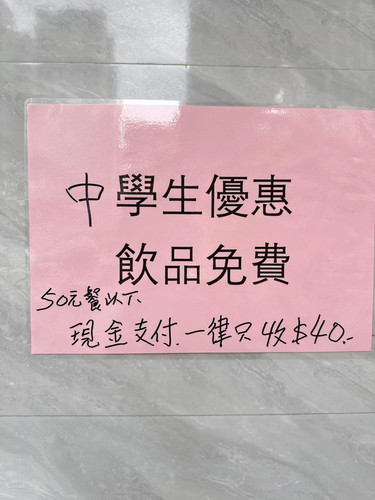 中學生優惠
飲品免費
50元餐以下
現金支付.一律只收$40.-